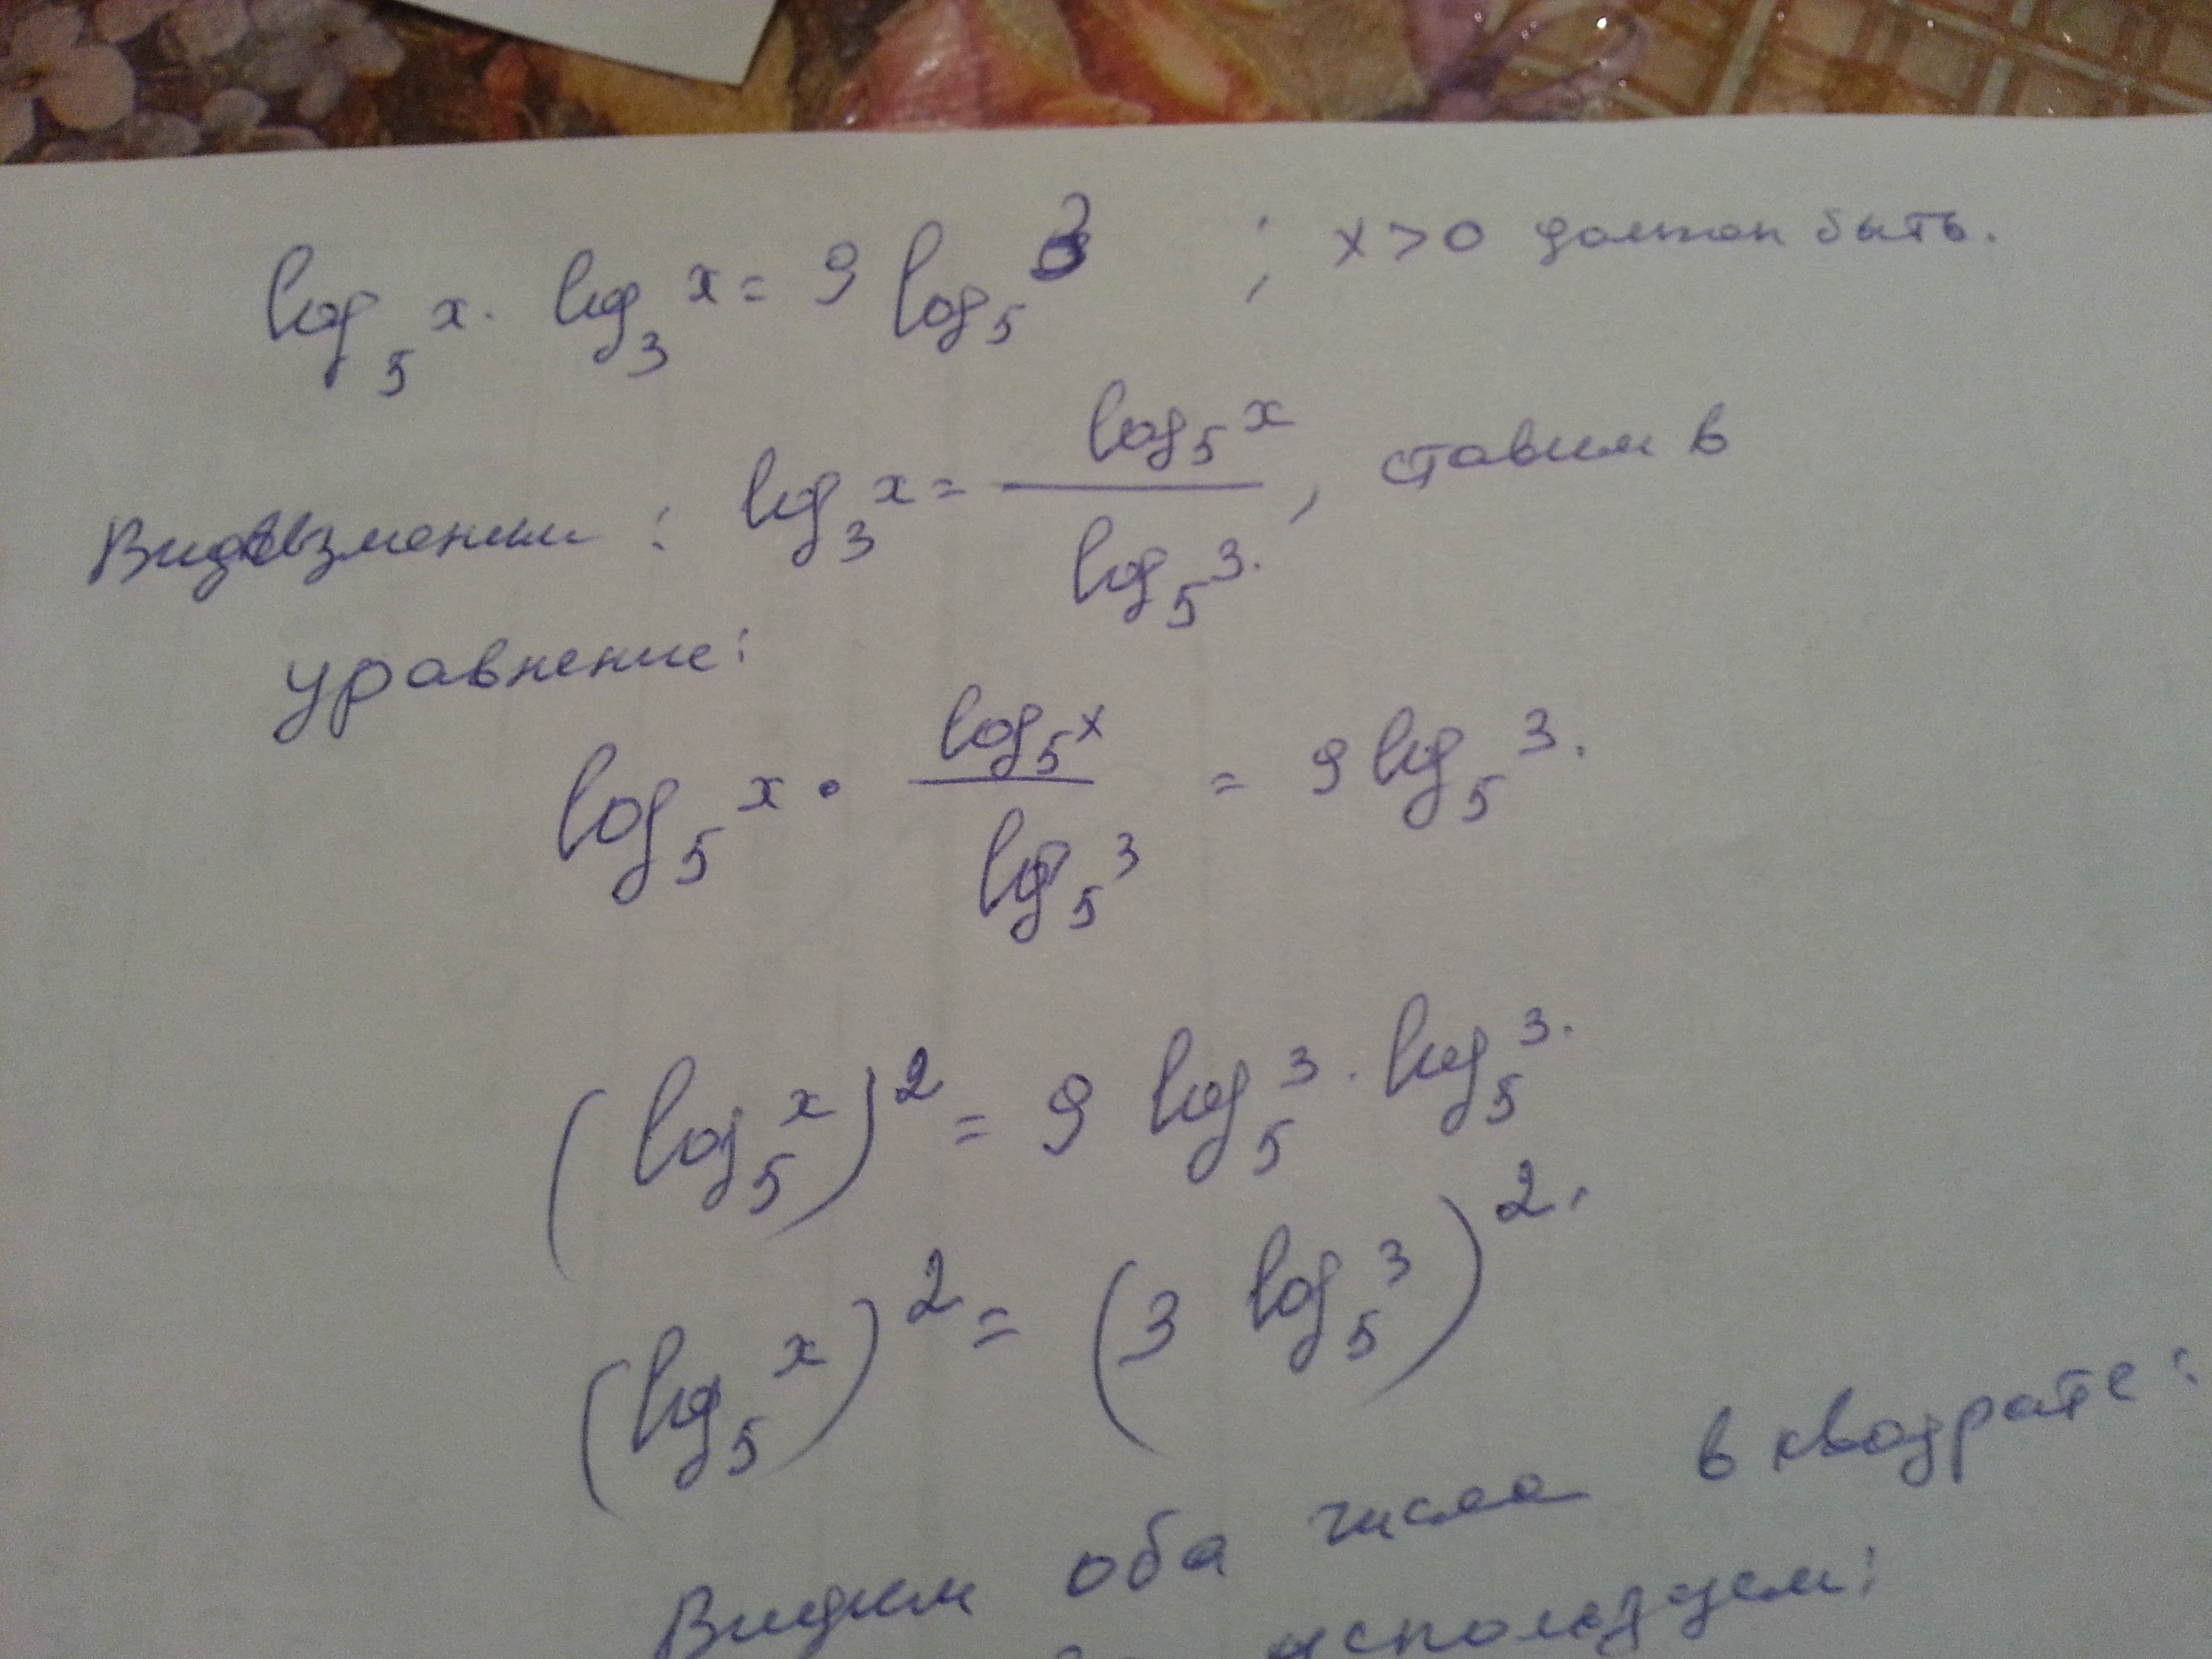 log₅ x · log₃ x = 9 log₅ 3 ; x > 0 должен быть.
Видеизменим : log₃ x = log₅ x / log₅ 3. , ставим в
уравнение:
log₅ x · log₅ x / log₅ 3 = 9 log₅ 3.
(log₅ x)² = 9 log₅ 3 · log₅ 3.
(log₅ x)² = (3 log₅ 3)².
Видим оба числа в квадрате:
используем: